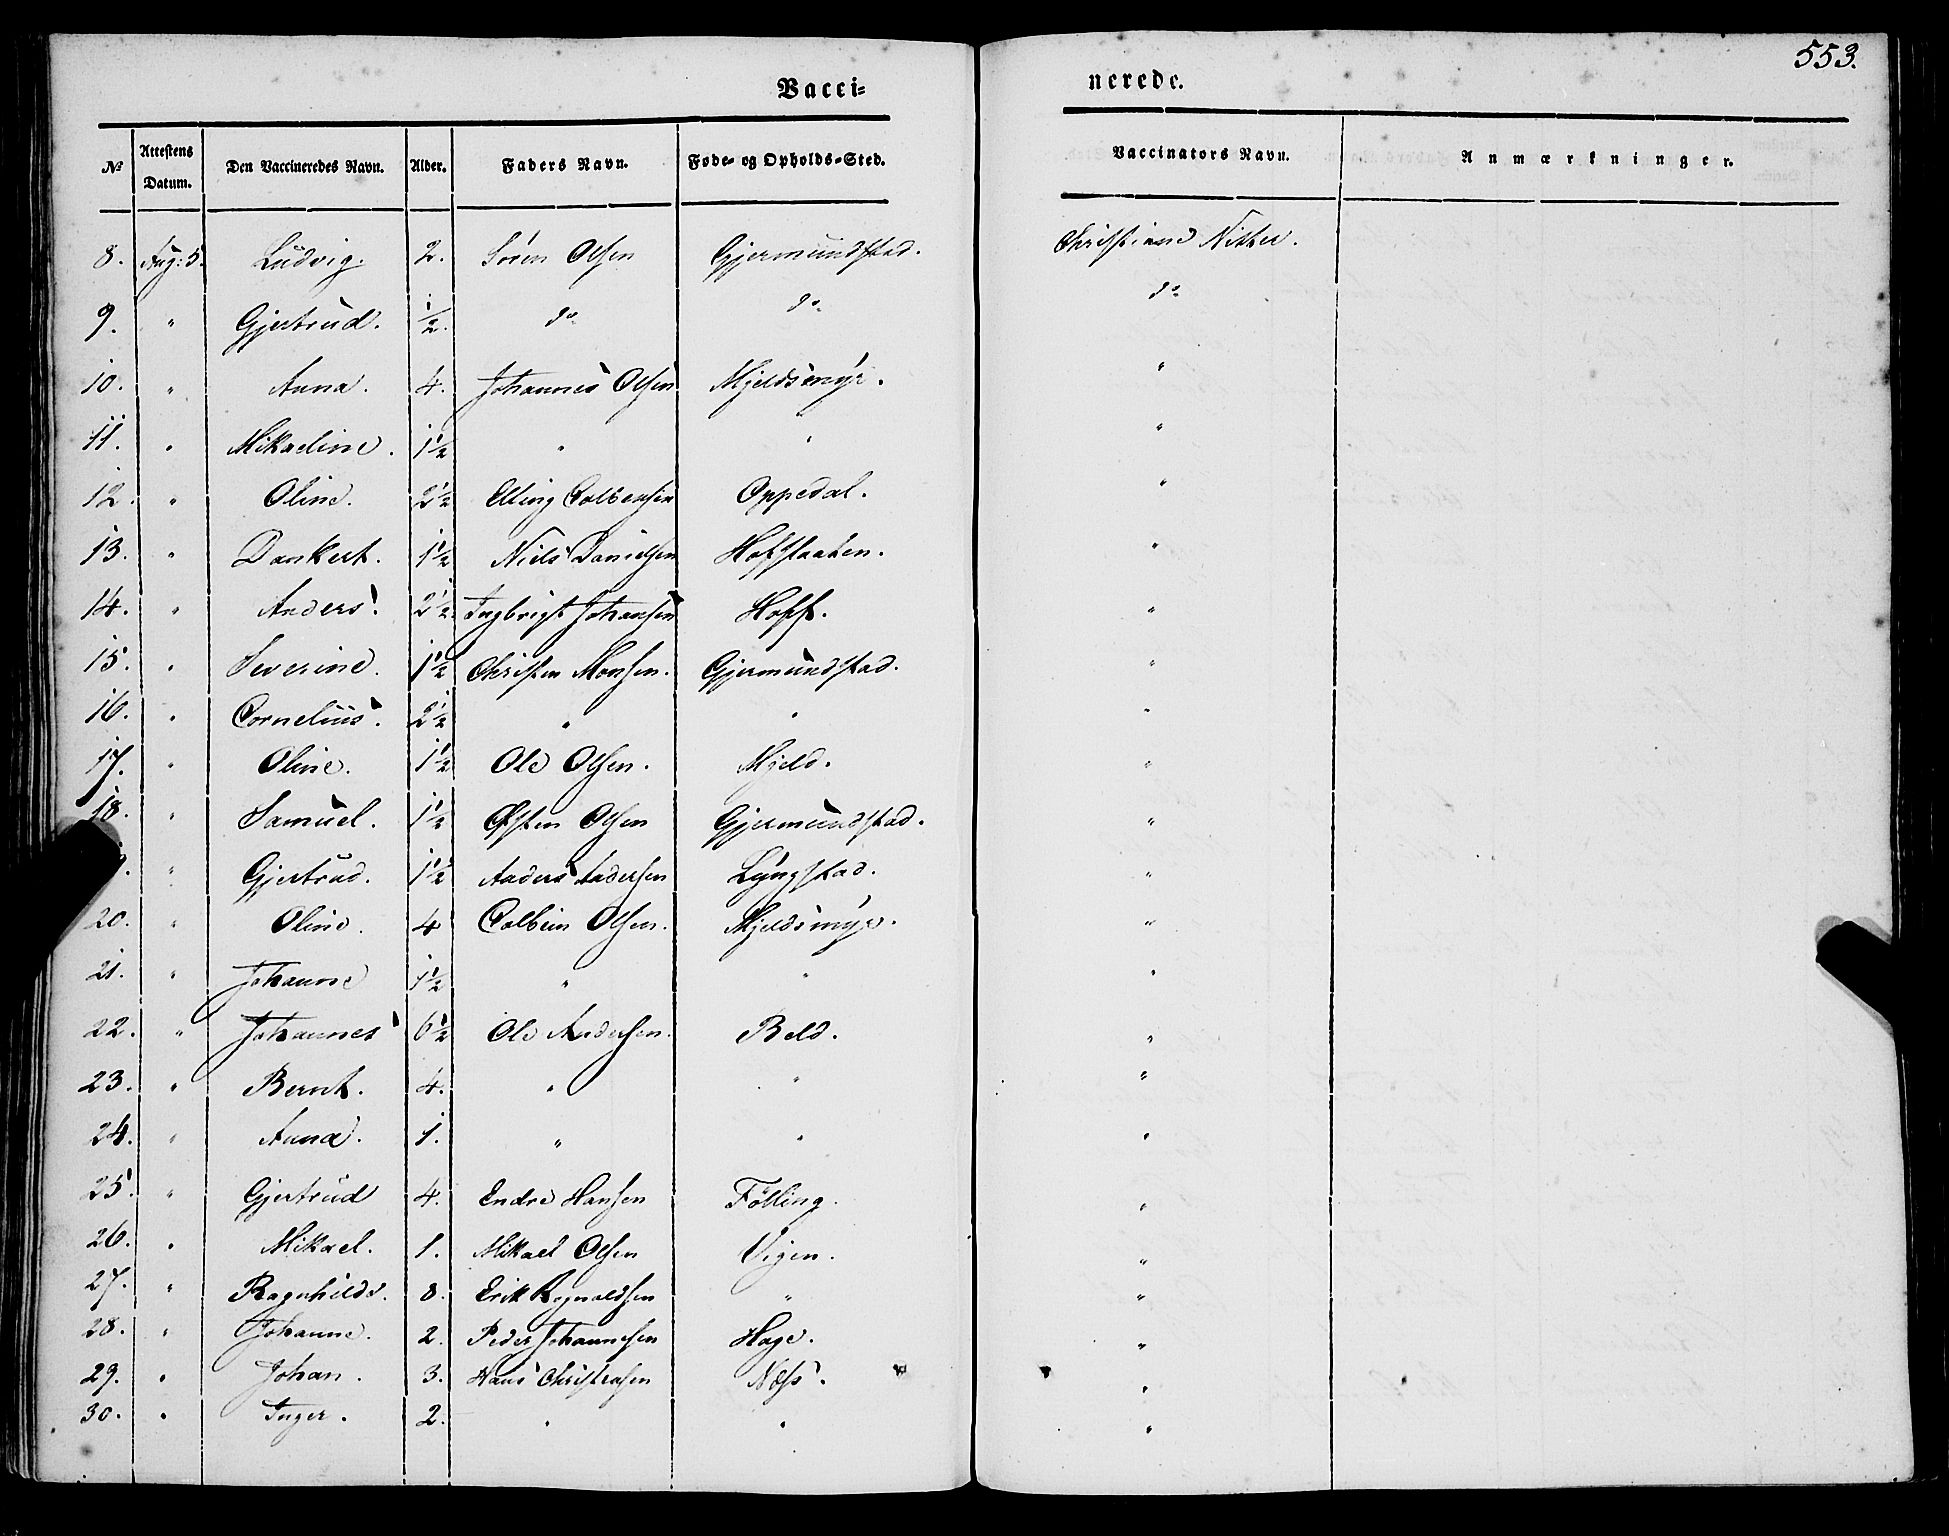 553.
Vacci=
nerede.
No Attestens Datum. Den Vaccineredes Navn. Alder. Faders Navn. Føde- og Opholds-Sted. Vaccinators Navn. Anmærkninger.
8. Aug: 5. Ludvig. 2. Sören Olsen Gjermundstad. Christiane
9. " Gjertrud. 1/2. do do do
10. " Anna. 4. Johannes Olsen Mjeldsmyr. "
11. " Mikaeline. 1 1/2 " " "
12. " Oline. 2 1/2 Elling Colbensen Oppedal. "
13. " Dankert. 1 1/2 Niels Danielsen Hofstaaten. "
14. " Anders. 2 1/2. Ingbrigt Johansen Hoff. "
15. " Severine. 1 1/2 Christen Monsen. Gjermundstad. "
16. " Cornelius. 2 1/2 " " "
17. " Oline. 1 1/2 Ole Olsen. Mjeld. "
18. " Samuel. 1 1/2 Østen Olsen Gjermundstad. "
" Gjertrud. 1 1/2 Anders Andersen Lyngstad. "
20. " Oline. 4 Colbein Olsen. Mjeldsmyr. "
21. " Johanne 1 1/2 " " "
22. " Johannes 6 1/2 Ole Andersen. Beld. "
23. " Bernt. 4. " " "
24. " Anna. 1. " " "
25. " Gjertrud 4. Endre Hansen Fölling. "
26. " Mikael. 1. Mikael Olsen Vigen. "
27. " Ragnhilde. 8. Erik Rognaldsen " "
28. " Johanne. 2. Peder Johannesen Hage. "
29. " Johan. 3. Hans Næss. "
30. " Inger. 2. " " "